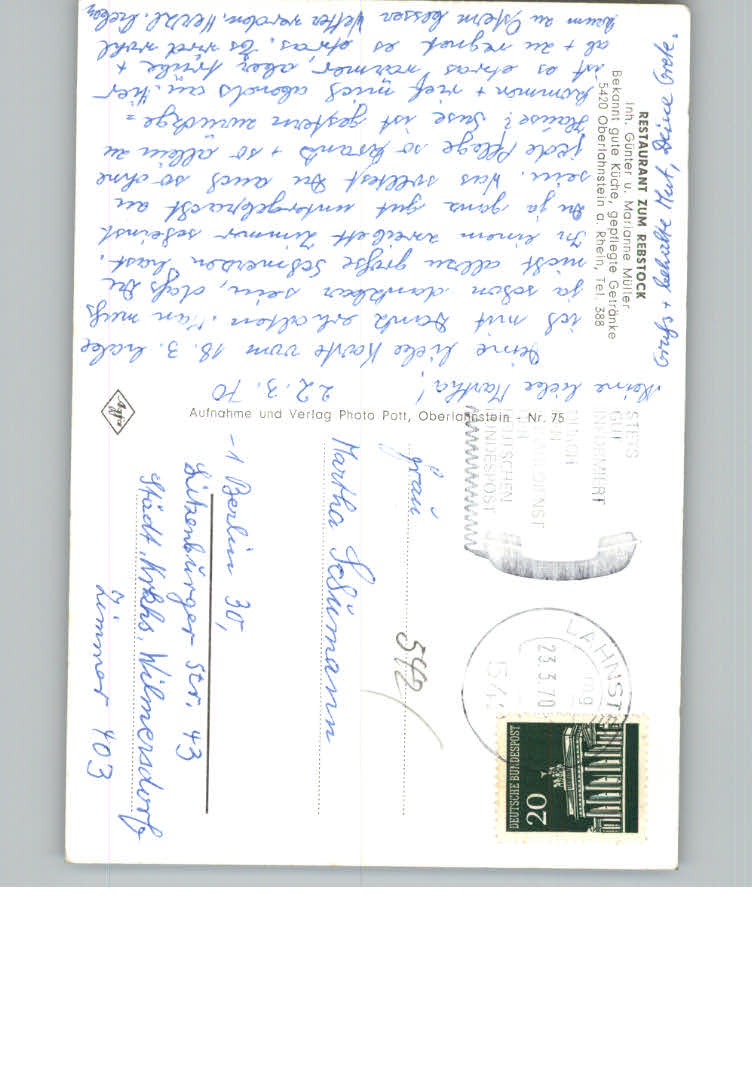 RESTAURANT ZUM REBSTOCK
Inh. Günter u. Marianne Müller
Bekannt gute Küche, gepflegte Getränke
5420 Oberlahnstein a. Rhein, Tel. 388
22.3.70
Meine liebe Martha!
Deine liebe Karte vom 18.3. habe
ich mit Dank erhalten. Man muß
ja schon dankbar sein, daß Du
nicht allzu große Schmerzen hast.
In einem Zweibett Zimmer scheinst
Du ja ganz gut untergebracht zu
sein. Was solltest Du auch so ohne
jede Pflege so krank + so allein zu
Hause? Suse ist gestern zurückge=
kommen + rief mich abends an. Hier
ist es etwas wärmer, aber trübe +
ab + zu regnet es etwas. Es wird wohl
kaum zu Ostern besser Wetter werden. Herzl. lieben
Gruß + Deine Grete.
Aufnahme und Verlag Photo Pott, Oberlahnstein - Nr. 75
Agfa
STETS
GUT
INFORMIERT
DURCH
DEN
DIENST
DER
DEUTSCHEN
BUNDESPOST
LAHNST
23.3.70
542
DEUTSCHE BUNDESPOST
20
Frau
Martha Schumann
542
-1 Berlin 30,
Lietzenburger Str. 43
Städt. Krkhs. Wilmersdorf
Zimmer 403